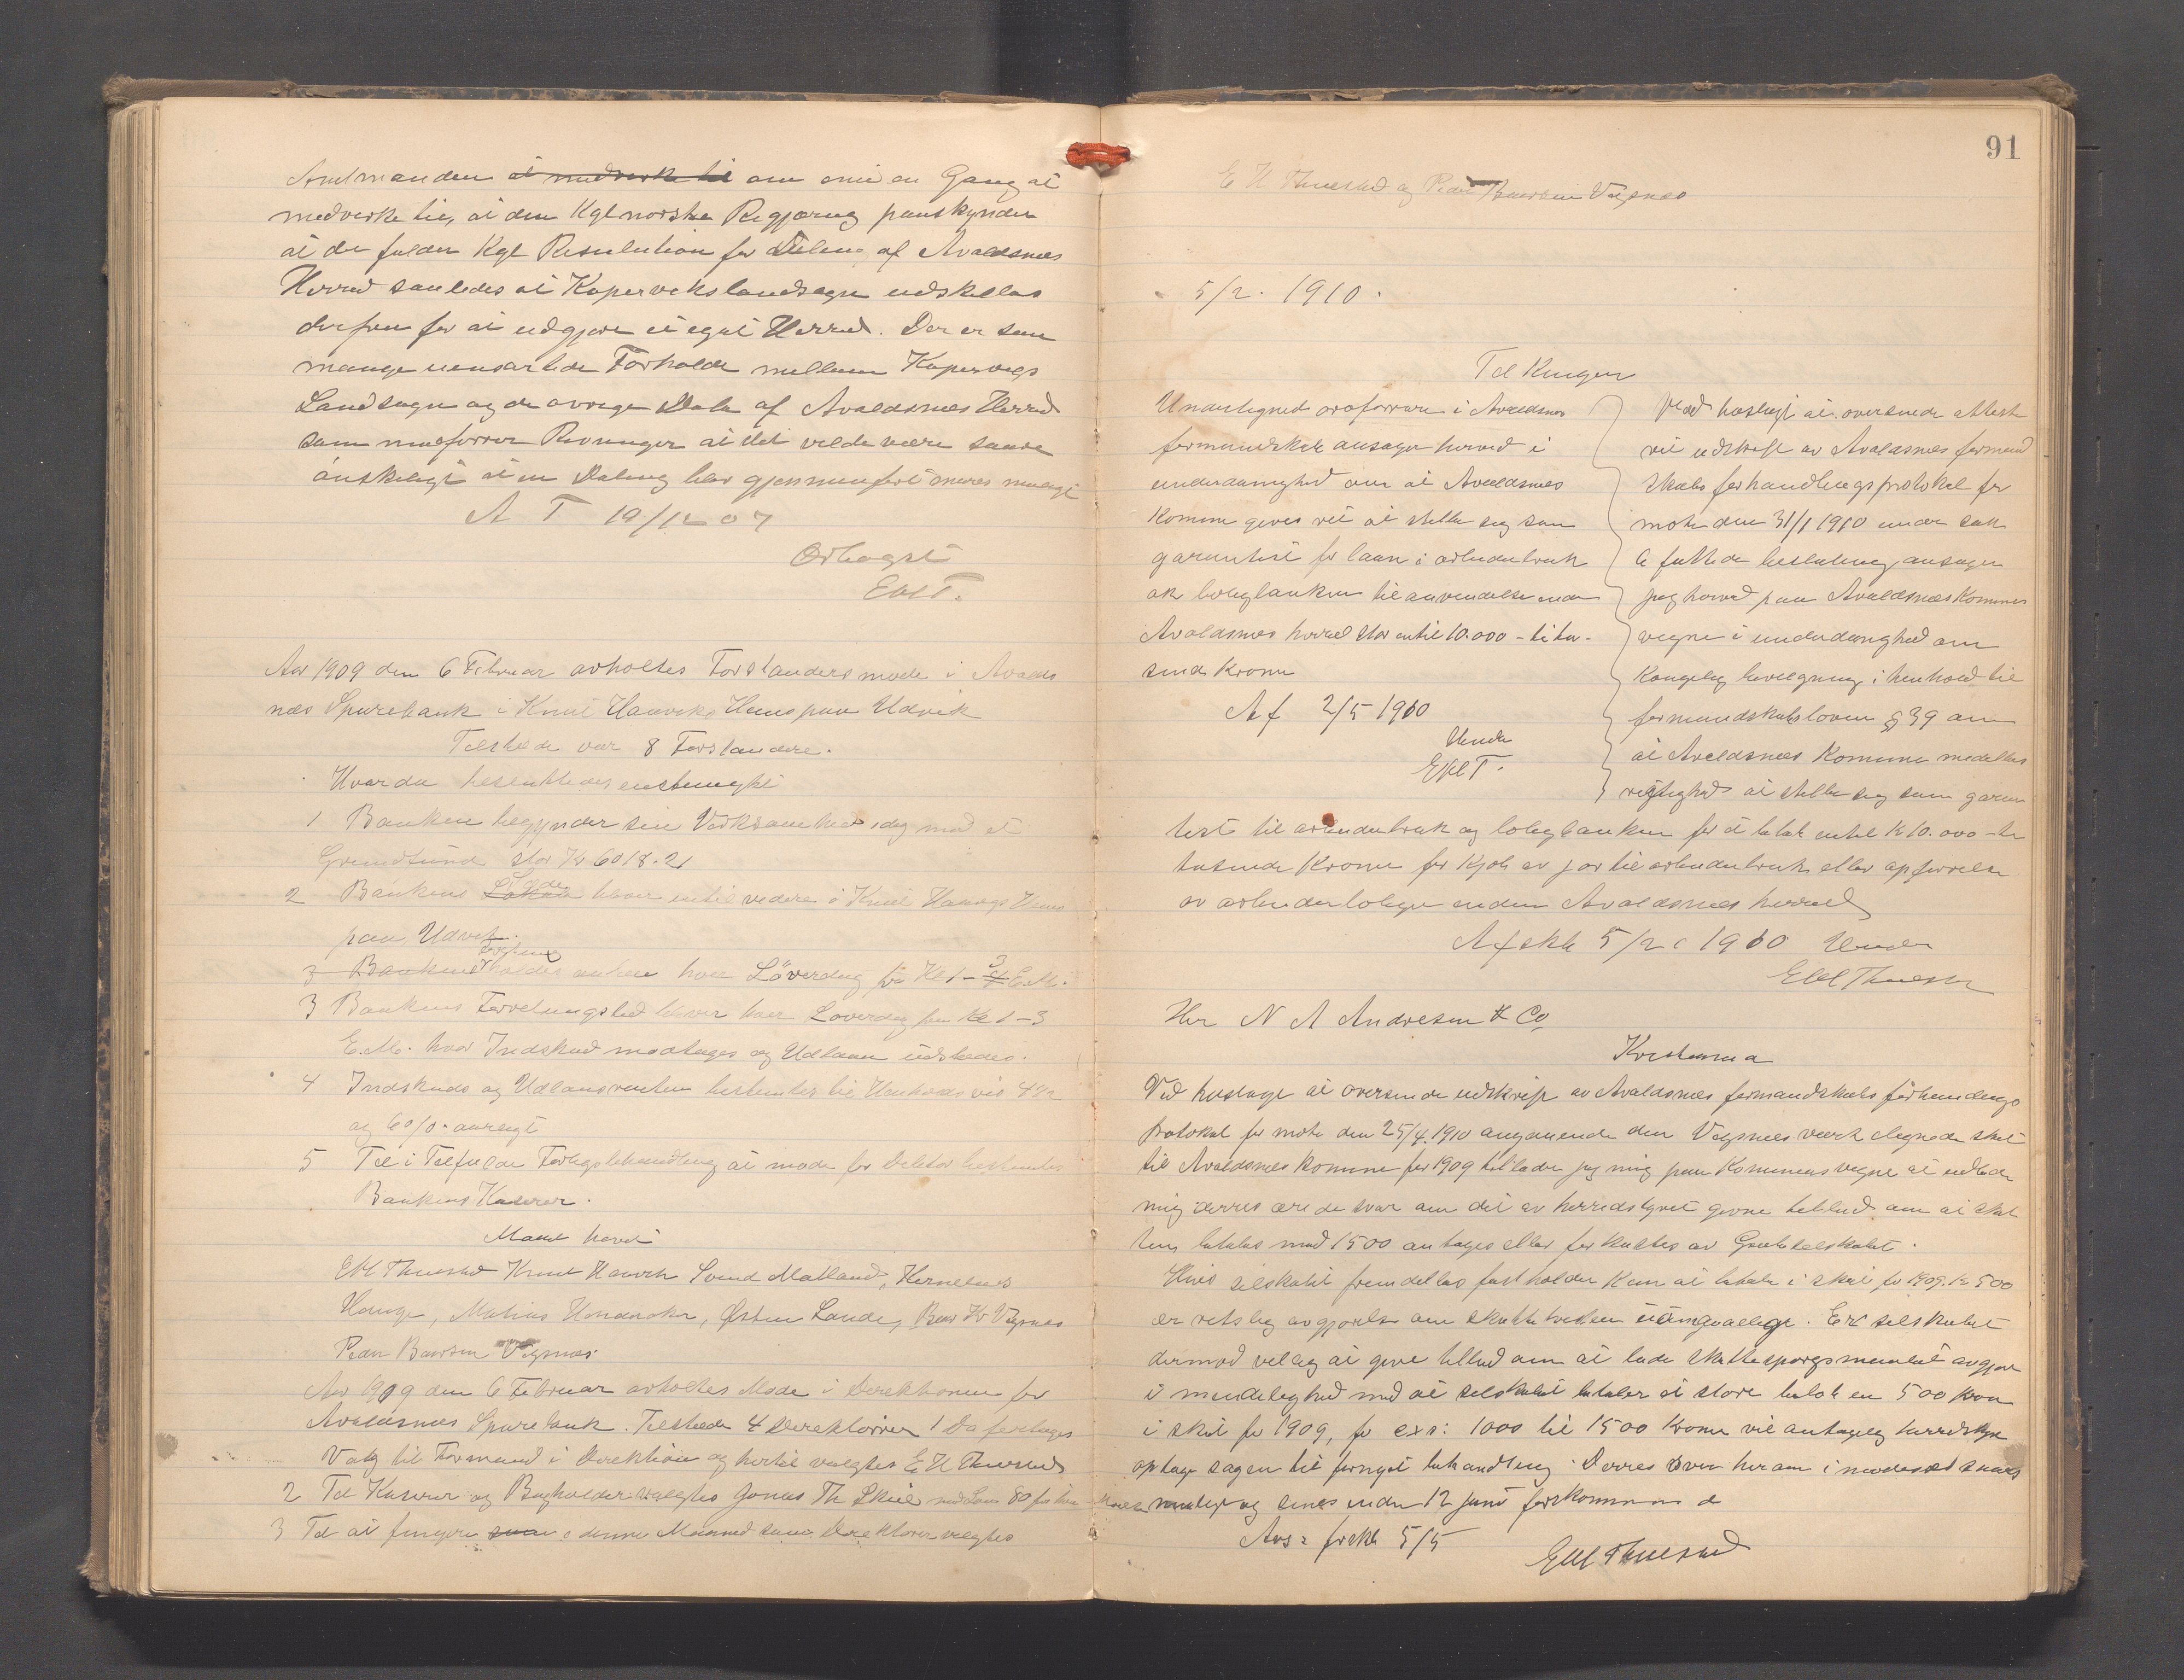 Amtmanden at medvirke til om enu en Gang at
medvirke til, at den Kgl norske Regjæring paaskynder
at der falder Kgl Resulution for Deling af Avaldsnes
Herred saaledes at Kopervikslandsogn udskilles
derfra for at udgjøre et eget Herred. Der er saa
mange uensartede Forholde mellem Kopervigs
Landsogn og de øvrige Dele af Avaldsnes Herred
som medfører Rivninger at det vilde være
ønskeligt at en Deling blev gjennemført snarest muligt
A T 19/12 07
Erbogst
EHT.
Aar 1909 den 6 Februar avholtes Forstandersmøde i Avalds
nes Sparebank i Knut Hauviks Hus paa Udvik
Tilstede var 8 Forstandere.
Hvor da besluttedes enstemigt
1 Banken begynder sin Virksomhed idag med et
Grundfund stor Kr 6018.21
2 Bankens Lokale bliver indtil videre i Knut Haugs Hus
paa Udvik.
3 Bankens holdes aaben hver Löverdag fra Kl 1–3 E.M.
3 Bankens Foretningstid bliver hver Löverdag fra Kl 1–3
E.M. hvor Indskud modtages og Udlaan udstedes.
4 Indskuds og Udlaansrenten bestemtes til Henholdsvis 4½
og 6 0/0 aarligt
5 Til i Tilfælde Forligsbehandling at møde for bestemtes
Bankens Kaserer.
Mødet hævet
EH Thuestad Knut Hauvik Svend Matland, Kornelius
Hauge, Matias, Østen Lande, Baar Kr Vigsnes
Peder Baarsen Vigsnes
Aar 1909 den 6 Februar avholtes Møde i Direktionen for
Avaldsnes Sparebank. Tilstede 4 Direktører 1 Da foretages
Valg til Formand i Direktion og hertil valgtes E H Thuestad
2 Til Kaserer og Bogholder valgtes Jonas Th Skeie med Løn 80 for
3 Til at fungere denne Maaned som Direktører valgtes
91
E H Thuestad og Peder Baarsen Vigsnes
5/2. 1910.
Til Kongen
Undertegnede ordfører i Avaldsnes
formandskab ansøger herved i
underdanighed om at Avaldsnes
Komune gives ret at stille sig som
garantist for laan i arbeiderbruk
ok boligbanken til anvendelse inden
Avaldsnes herred stor intil 10.000 – titu-
sinde Kroner
Af 2/5 1910
Under
EHT.
Ved hoslagt at oversende attestert
ret udskrift av Avaldsnes formand
skabs forhandlingsprotokol for
møte den 31/1 1910 under sak
6 fattede beslutning ansøger
jeg herved paa Avaldsnes Komunes
vegne i underdanighed om
Kongelig bevilgning i henhold til
formandskabsloven § 39 om
at Avaldsnes Komune meddeles
rigtighed at stille sig som garan
tist til arbeiderbruk og boligbanken for et beløb intil K 10.000 – ti
tusinde Kroner for Kjøb av jor til arbeiderbruk eller opførelse
av arbeiderboliger inden Avaldsnes herred
Afskk 5/2 1910 Under
EH Thuestad
Her N A Andresen & Co,
Kristiania
Ved hoslagt at oversende udskrift av Avaldsnes formandskabs forhandlings
protokol for møte den 25/4. 1910 angaaende den Vigsnes værk ilignede skat
til Avaldsnes Komune for 1909 tillader jeg mig paa Komunens vegne at udbede
mig derres ærede svar om det av herredstyret givne tilbud om at skat
ten betales med 1500 antages eller forkastes av Grubeselskabet.
Hvis selskabet fremdelles fastholder Kun at betale i skat for 1909. Kr 500
er retslig avgjørelse om skattetvisten uungaaelige. Er selskabet
dermod villig at give tilbud om at lade skattespørgsmaalet avgjøre
i mindelighed med at selskabet betaler et større beløb en 500 Kron
i skat for 1909, for ex: 1000 til 1500 Kroner vil antagelig herredstyre
optage sagen til fornyet behandling. Derres svar herom i snarest
muligt og senest inden 12 juni
Avs: forskk 5/5
EH Thuestad